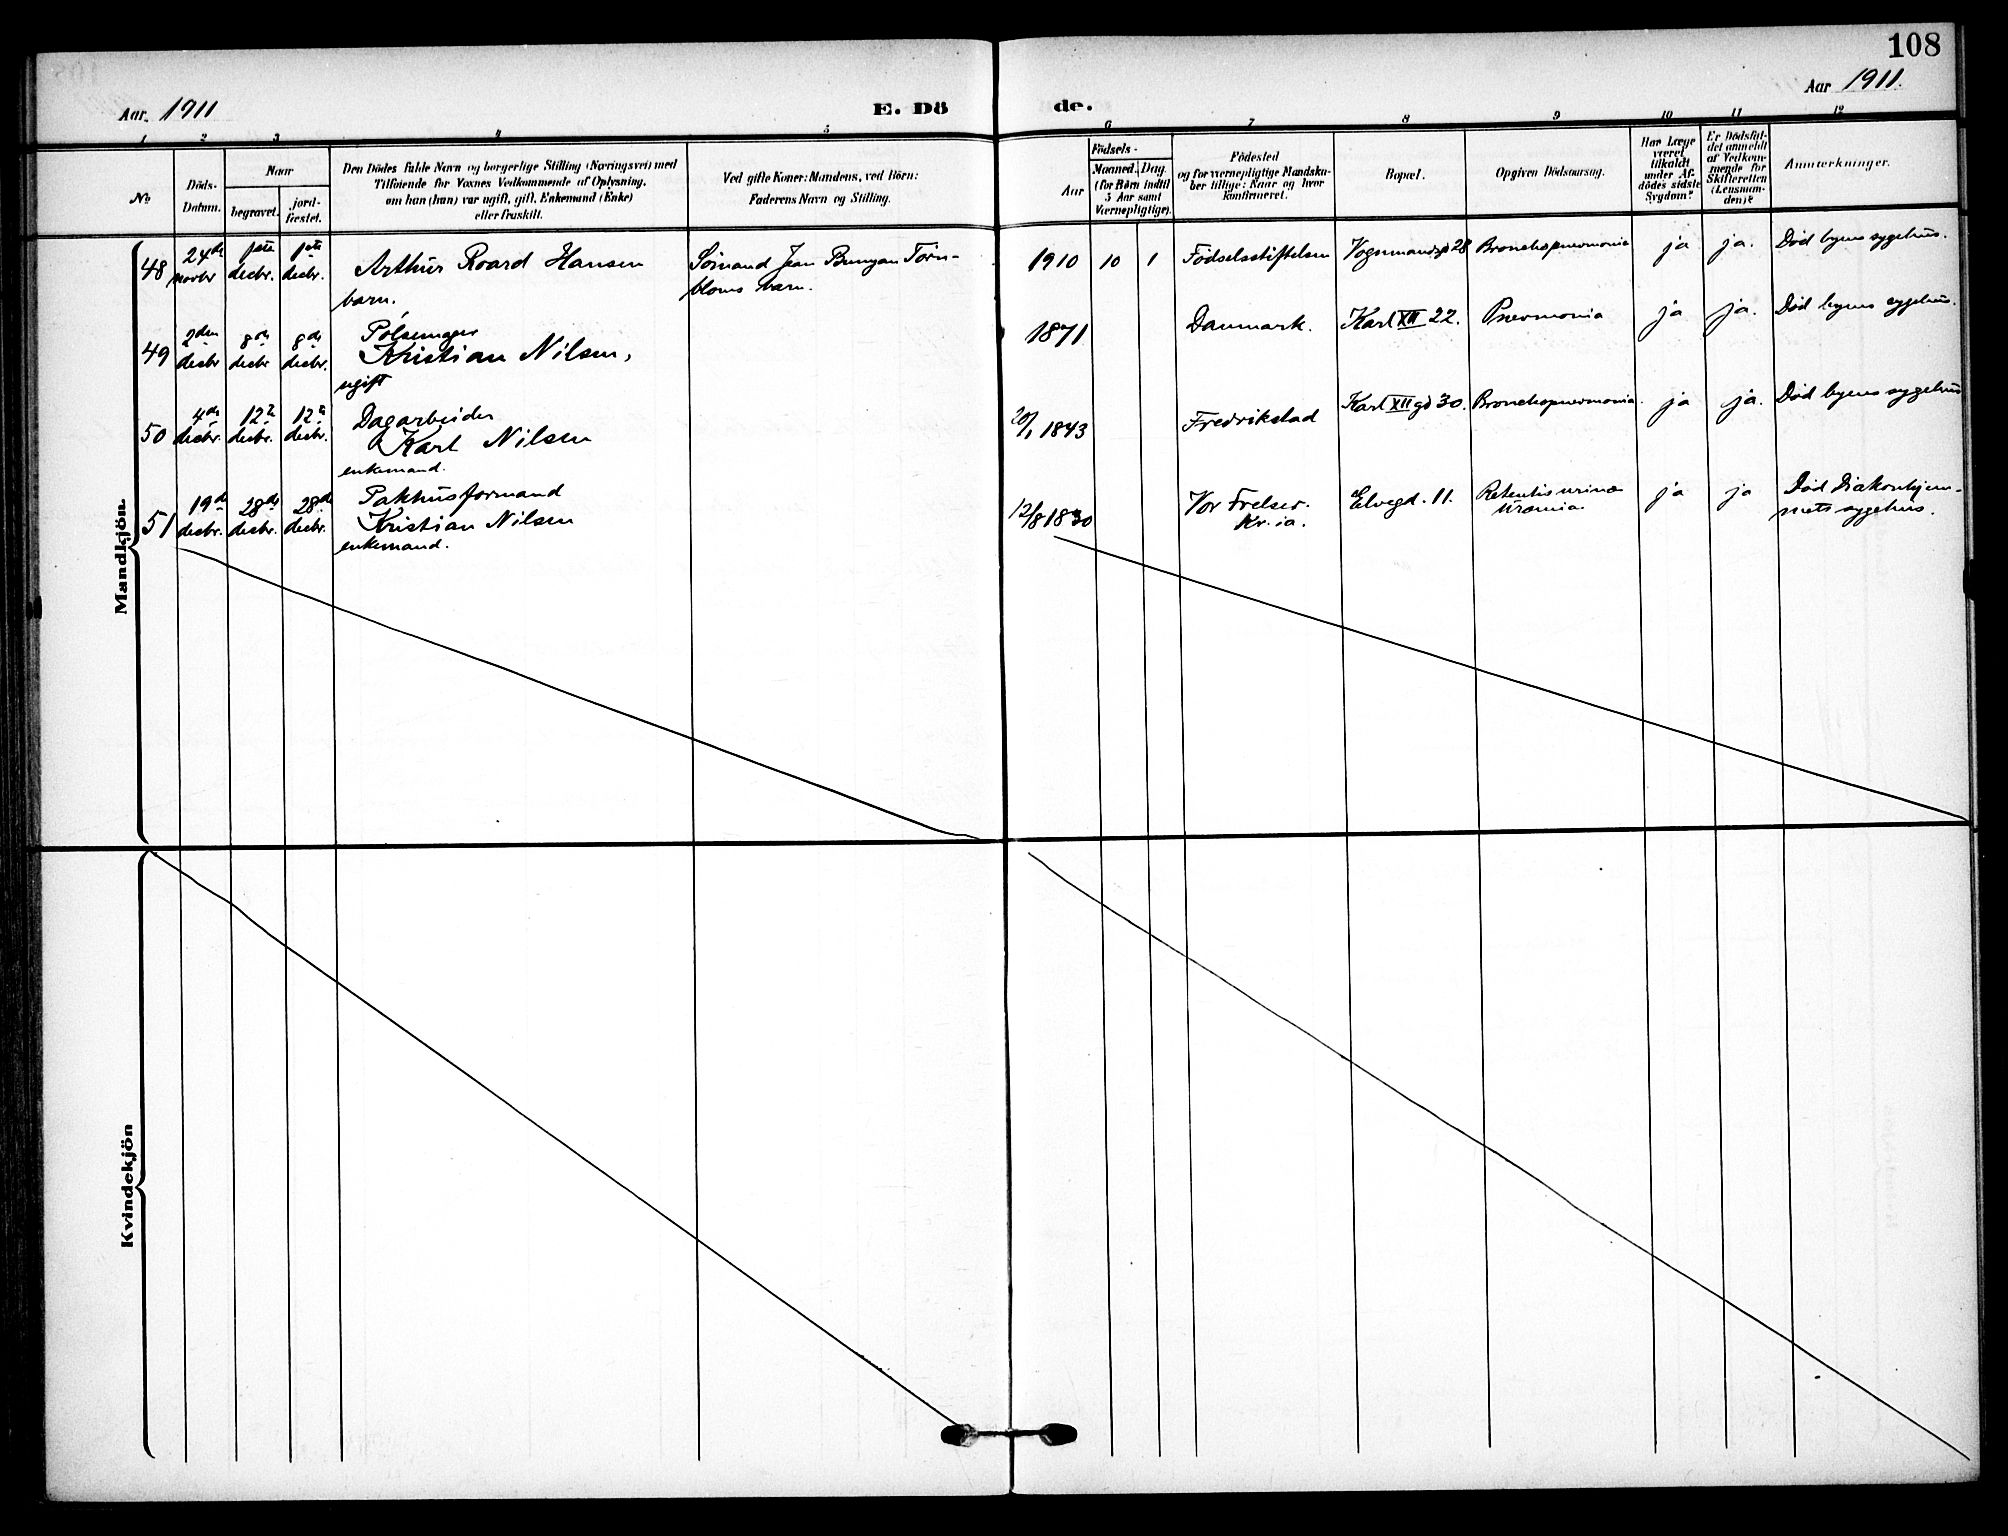 108
Aar. 1911
E. Dö
de.
Aar 1911.
1 2 3 4 5
6 7 8 9 10 11 12
No
Döds-
Datum.
Naar
begravet.
jord-
fæstet.
Den Dödes fulde Navn og borgerlige Stilling (Næringsvei) med
Tilföiende for Voxnes Vedkommende af Oplysning,
om han (hun) var ugift, gift, Enkemand (Enke)
eller fraskilt.
Ved gifte Koner: Mandens, ved Börn:
Faderens Navn og Stilling.
Födsels-
Aar
Maaned. Dag
(for Børn indtil
5 Aar samt
Værnepligtige).
Födested
og for værnepligtige Mandska-
ber tillige: Naar og hvor
konfirmeret.
Bopæl.
Opgiven Dödsaarsag.
Har Læge
været
tilkaldt
under Af-
dödes sidste
Sygdom?
Er Dödsfal-
det anmeldt
af Vedkom-
mende for
Skifteretten
(Lensman-
den)?
Anmærkninger.
Mandkjön.
48 24de novbr 1ste decbr. 1ste decbr. Arthur Roard Hansen
barn.
Sömand Jean Bunyan Törn-
bloms barn.
1910 10 1 Födselsstiftelsen Vognmandsgd 28 Bronchopneumonia ja ja. Död byens sygehus.
49 2den decbr 8de decbr 8de decbr. Pölsemager
Kristian Nilsen,
ugift
1871 Danmark. Karl XII 22. Pneumonia ja ja. Död byens sygehus.
50 4de decbr. 12te decbr. 12te decbr. Dagarbeider
Karl Nilsen
enkemand.
20/1 1843 Fredrikstad Karl XII gd 30. Bronchopneumonia. ja ja. Död byens sygehus
51 19de decbr. 28de decbr. 28de decbr. Pakhusformand
Kristian Nilsen
enkemand.
12/8 1830 Vor Frelser.
Kr.ia.
Elvegd. 11. Retentio urinæ
Uræmia.
ja ja Död Diakonhjem-
mets sygehus.
Kvindekjön